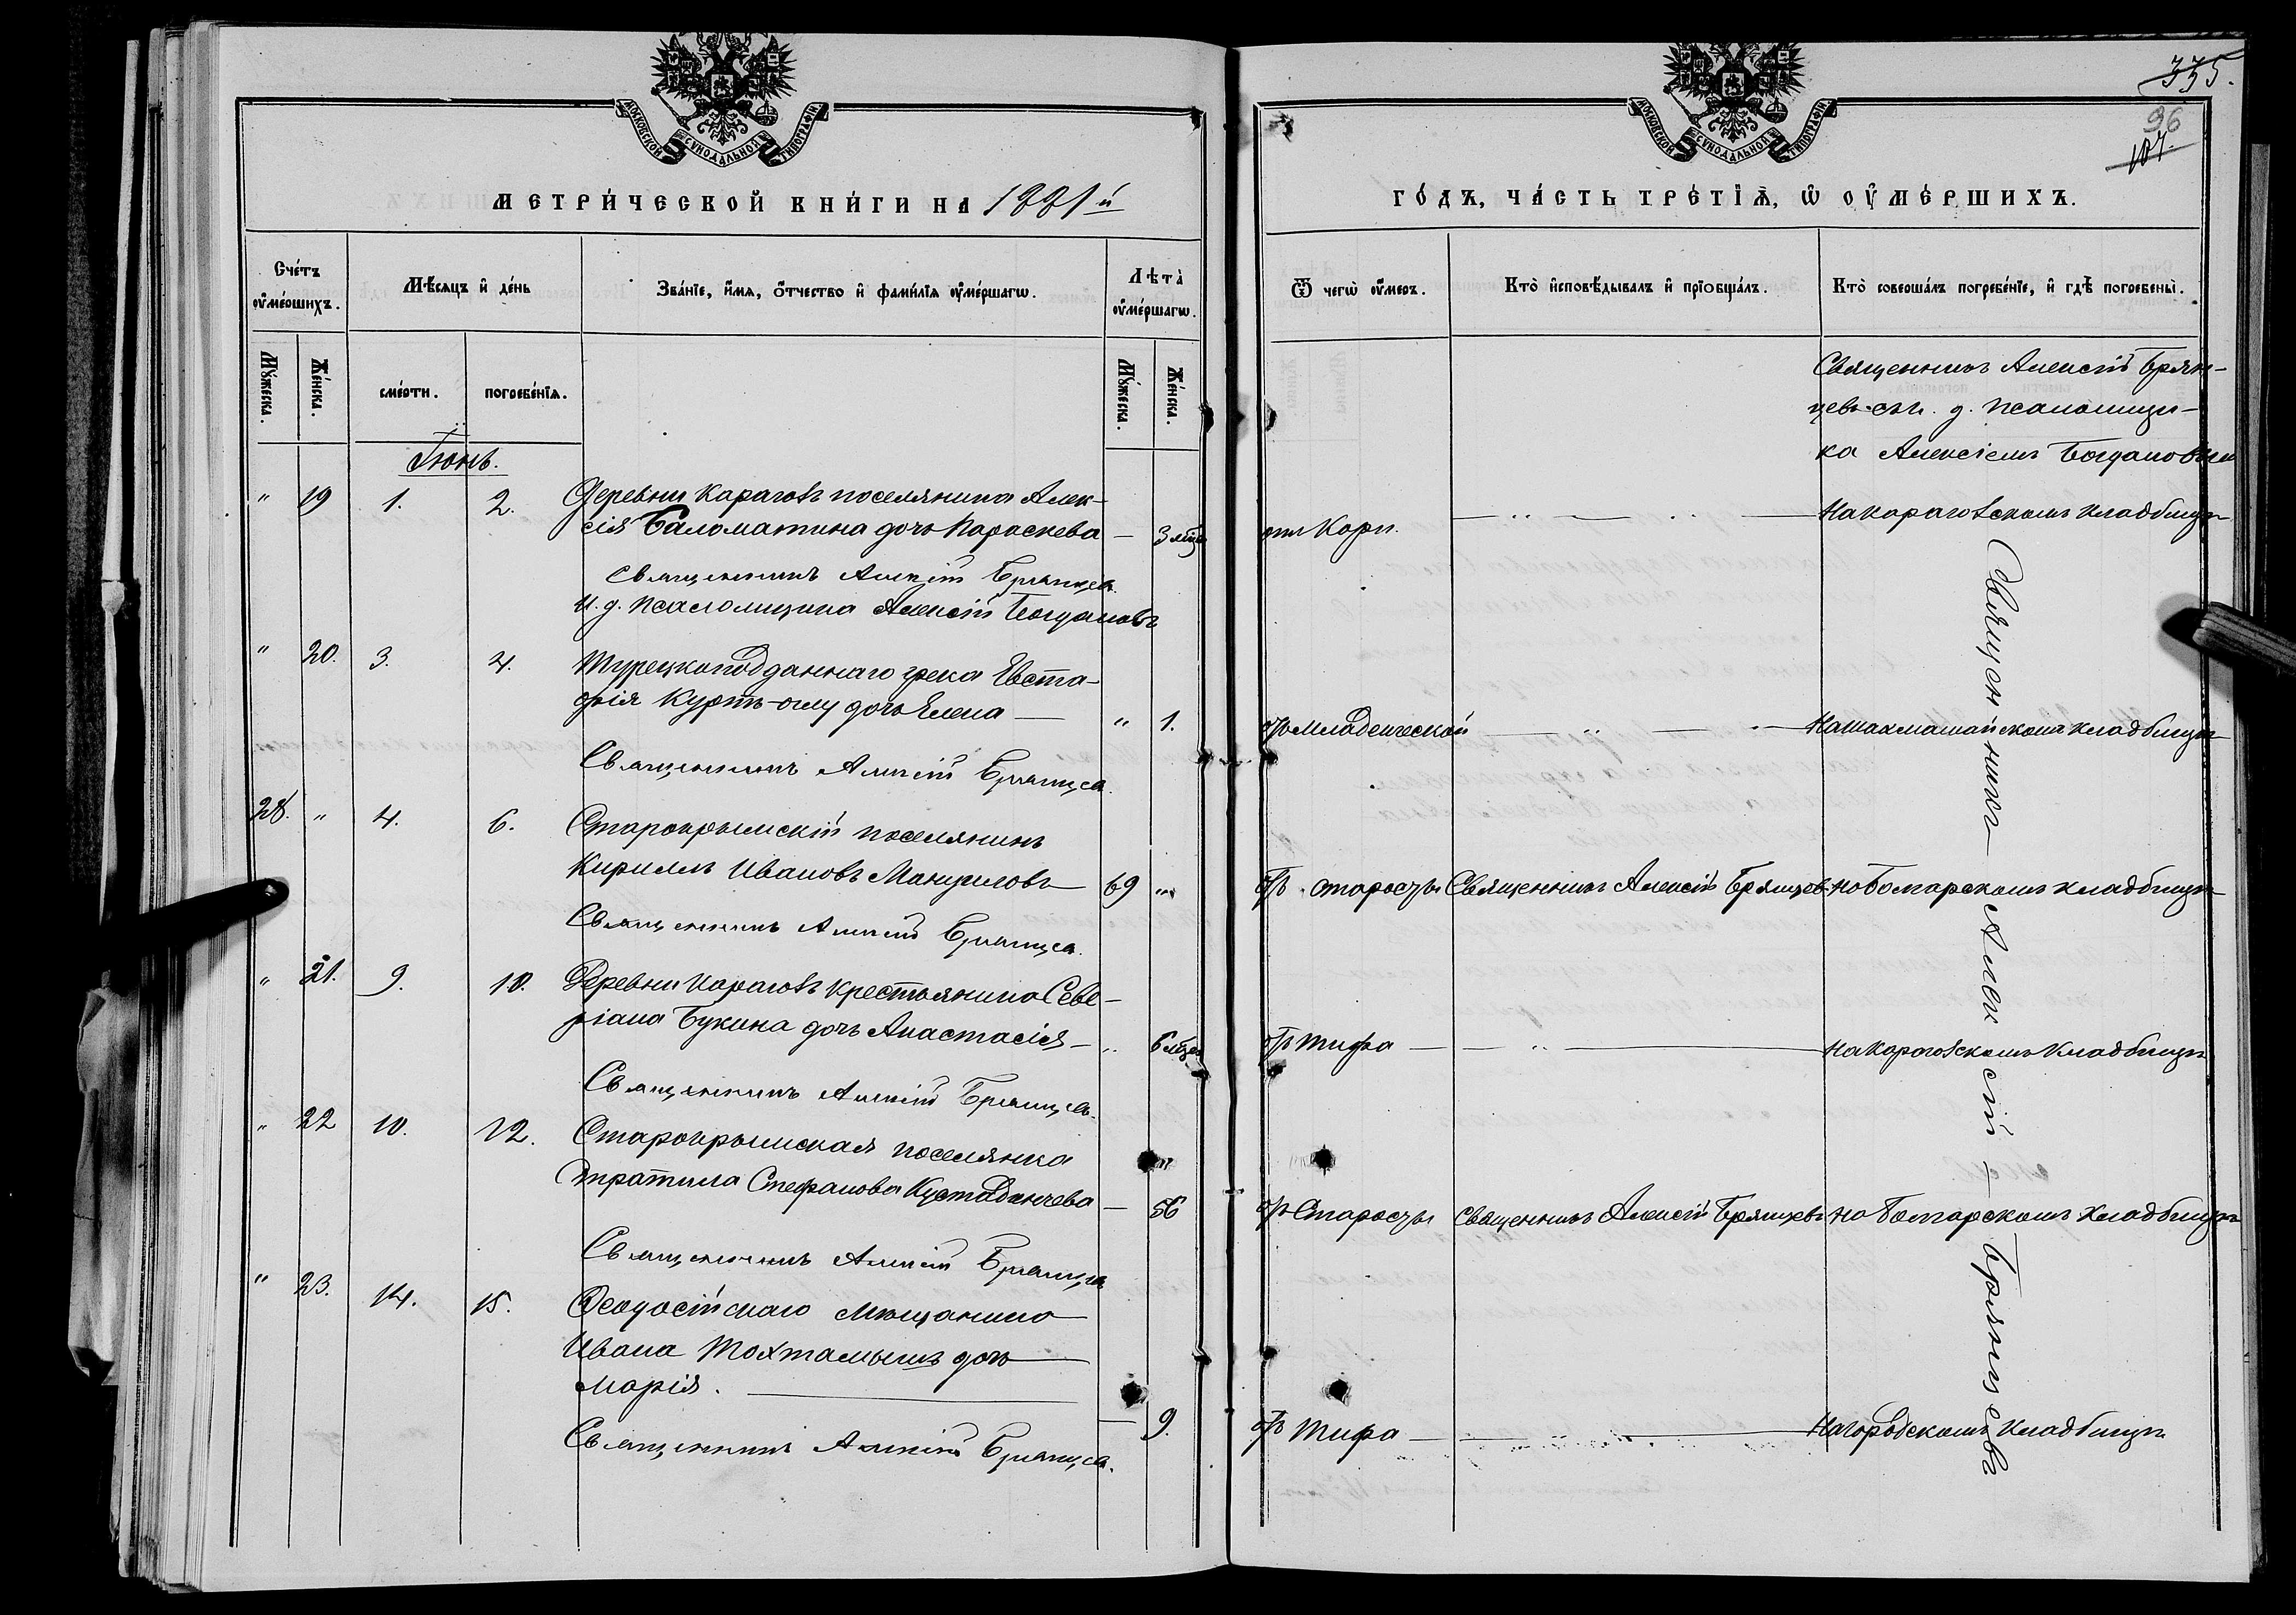 МОСКОВСКОЙ СѴНОДАЛЬНОЙ ТИПОГРАФІИ
МЕТРИ́ЧЕСКОЙ КНИ́ГИ НА 1881й
Сче́тъ ᲂу҆ме́ршихъ.
Мѣ́сяцъ и҆ де́нь
Зва́нїе, и҆́мя, ѻ҆́тчество и҆ фами́лїя ᲂу҆ме́ршагѡ.
Лѣта̀ ᲂу҆ме́ршагѡ.
Мꙋ́жеска.
Же́нска.
сме́рти.
погребе́нїя.
Мꙋ́жеска.
Же́нска.
Іюнь.
" 19 1. 2. Деревни Карагозъ поселянина Алек-
сія Баломатина дочь Параскева — 3 мѣс
Священникъ Алексій Брянцевъ
И. д. псаломщика Алексій Богдановъ
" 20. 3. 4. Турецкоподданнаго грека Евста-
фія Куртъ-оглу дочь Елена — " 1.
Священникъ Алексій Брянцевъ.
28. " 4. 6. Старокрымскій поселянинъ
Кириллъ Ивановъ Мануиловъ 69 "
Священникъ Алексій Брянцевъ.
" 21. 9. 10. Деревни Карагозъ крестьянина Севе-
ріана Букина дочь Анастасія — " 6 мѣс
Священникъ Алексій Брянцевъ.
" 22 10. 12. Старокрымская поселянка
Стратила Стефанова — 56
Священникъ Алексій Брянцевъ
" 23. 14. 15. Ѳеодосійскаго мѣщанина
Ивана Тохтамышъ дочь
Марія. — 9.
Священникъ Алексій Брянцевъ.
335.
96
107.
МОСКОВСКОЙ СѴНОДАЛЬНОЙ ТИПОГРАФІИ
ГО́ДЪ, ЧА́СТЬ ТРЕ́ТЇѦ, Ѡ҆ ОУ҆МЕ́РШИХЪ.
Ѿ чегѡ̀ ᲂу҆́меръ.
Кто̀ и҆сповѣ́дывалъ и҆ прїобща́лъ.
Кто̀ соверша́лъ погребе́нїе, и҆ гдѣ̀ погребены̀.
Священникъ Алексій Брян-
цевъ съ и. д. псаломщи-
ка Алексіемъ Богдановымъ
отъ Кори. — " — " — На Карагозскомъ кладбищѣ
отъ Младенческой — " — На Шахмашайскомъ кладбищѣ
отъ старости Священникъ Алексій Брянцевъ на Болгарскомъ кладбищѣ
отъ Тифа — " — на Карагозскомъ кладбищѣ
отъ Старости Священникъ Алексій Брянцевъ на Болгарскомъ кладбищѣ
отъ Тифа — На городскомъ кладбищѣ
Священникъ — Алексій — Брянцевъ